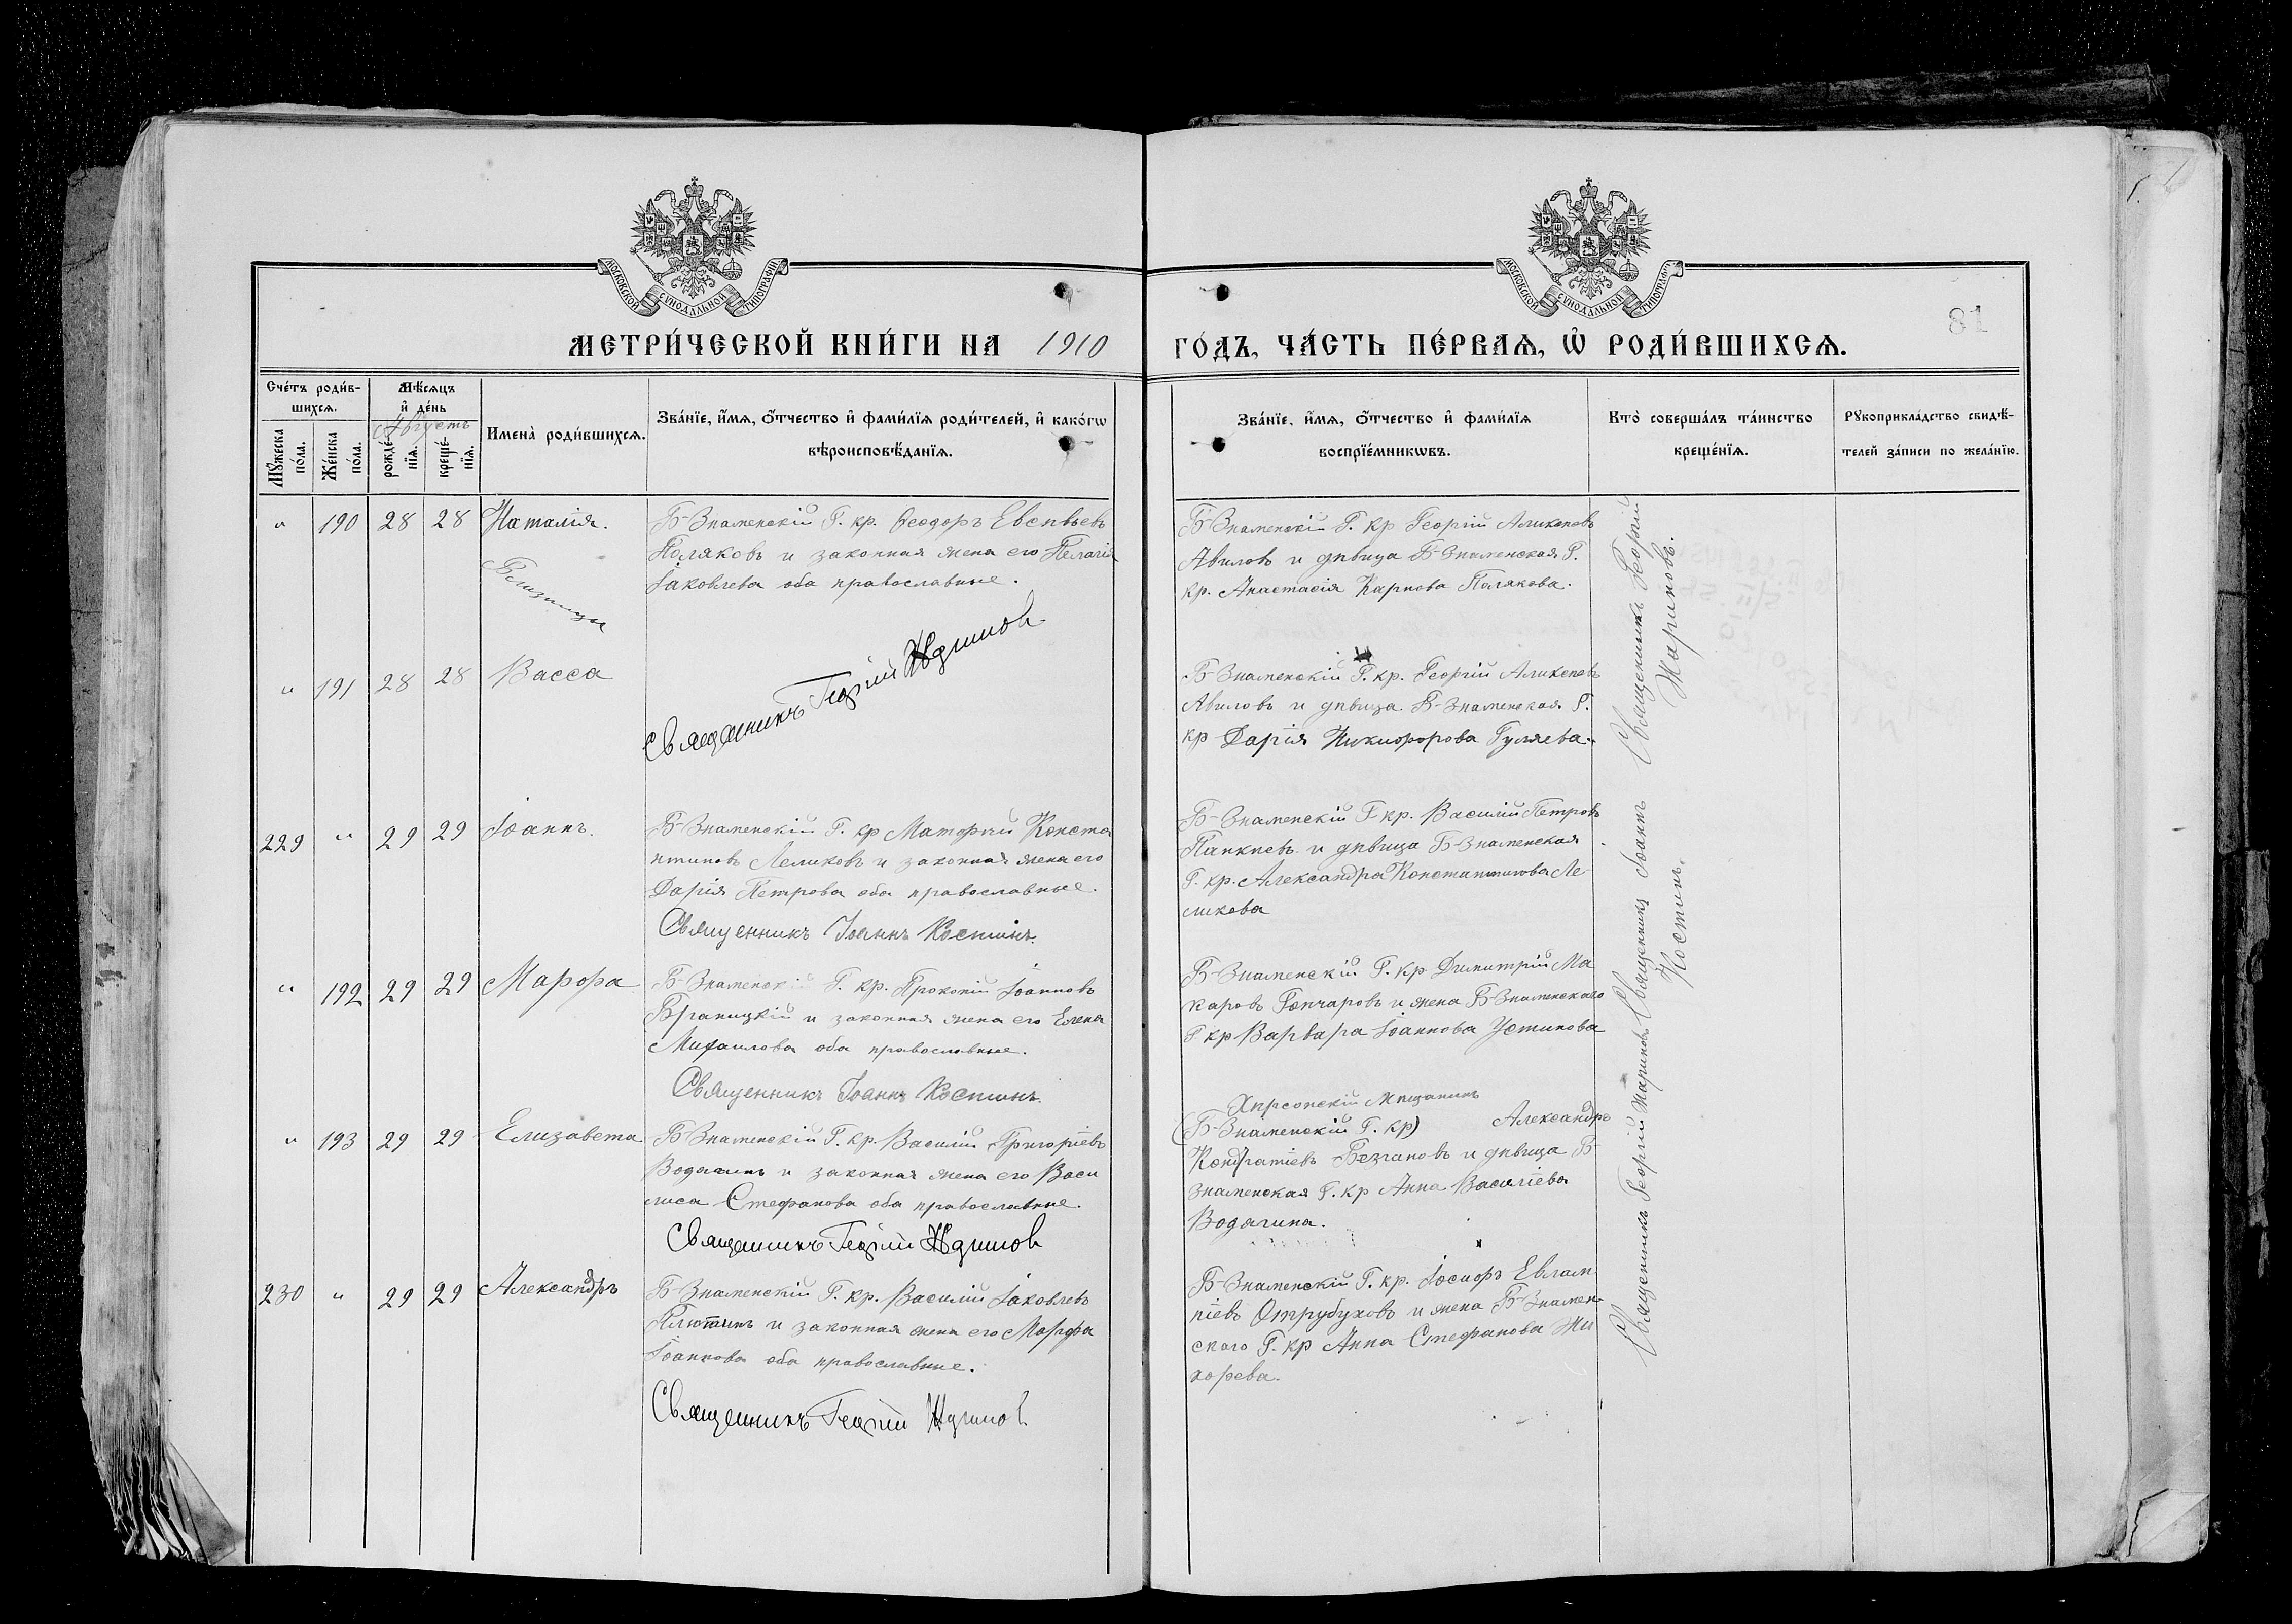 МОСКОВСКОЙ СѴНОДАЛЬНОЙ ТИПОГРАФІИ
МОСКОВСКОЙ СѴНОДАЛЬНОЙ ТИПОГРАФІИ
81
МЕТРИ́ЧЕСКОЙ КНИ́ГИ НА 1910 ГО́ДЪ, ЧА́СТЬ ПЕ́РВАѦ, Ѡ҆ РОДИ́ВШИХСѦ.
Сче́тъ роди́в-
шихсѧ.
Мѣ́сѧцъ
и҆ де́нь
Августъ
Мꙋ́жеска
по́ла.
Же́нска
по́ла.
рожде́-
нїѧ.
креще́-
нїѧ.
Имена̀ роди́вшихсѧ.
Зва́нїе, и҆́мѧ, ѻ҆́тчество и҆ фами́лїѧ роди́телей, и҆ како́гѡ
вѣроисповѣ́данїѧ.
Зва́нїе, и҆́мѧ, ѻ҆́тчество и҆ фами́лїѧ
воспрїе́мникѡвъ.
Кто̀ соверша́лъ та́инство
креще́нїѧ.
Рꙋкоприкла́дство свидѣ́-
телей за́писи по жела́нїю.
" 190 28 28 Наталія.
Близнецы
Б-Знаменскій Г. кр. Ѳеодоръ Евсѣевъ
Поляковъ и законная жена его Пелагія
Іаковлева оба православные.
Б-Знаменскій Г. кр Георгій
Авиловъ и дѣвица Б-Знаменская Г.
кр. Анастасія Карпова Полякова.
Священникъ Георгій
Жариновъ.
" 191 28 28 Васса
Священникъ Георгій
Б-Знаменскій Г. кр. Георгій
Авиловъ и дѣвица Б-Знаменская Г.
кр Дарія Никифорова Гуляева.
229 " 29 29 Іоаннъ.
Б-Знаменскій Г. кр Матфій Конста
нтиновъ Леликовъ и законная жена его
Дарія Петрова оба православные.
Священникъ Іоаннъ Костинъ.
Б-Знаменскій Г кр. Василій Петровъ
и дѣвица Б-Знаменская
Г. кр. Александра Константинова Ле
ликова
Священникъ Іоаннъ
Костинъ.
" 192 29 29 Марфа
Б-Знаменскій Г. кр. Прокопій Іоанновъ
Браницкій и законная жена его Елена
Михаилова оба православные.
Священникъ Іоаннъ Костинъ.
Б-Знаменскій Г. кр Димитрій Ма
каровъ Гончаровъ и жена Б-Знаменскаго
Г кр Варвара Іоаннова Устинова
" 193 29 29 Елизавета
Б-Знаменскій Г. кр. Василій Григоріевъ
Водагинъ и законная жена его Васи
лиса Стефанова оба православные.
Священникъ Георгій
Херсонскій Мѣщанинъ
(Б-Знаменскій Г. кр) Александръ
Кондратіевъ и дѣвица Б-
Знаменская Г. кр Анна Василіева
Водагина.
Священникъ Георгій Жариновъ
230 " 29 29 Александръ
Б-Знаменскій Г. кр. Василій Іаковлевъ
Плютинъ и законная жена его Марфа
Іоаннова оба православные.
Священникъ Георгій
Б-Знаменскій Г. кр. Іосифъ Евлам
піевъ Отрубуховъ и жена Б-Знамен-
скаго Г. кр Анна Стефанова Жи
харева.